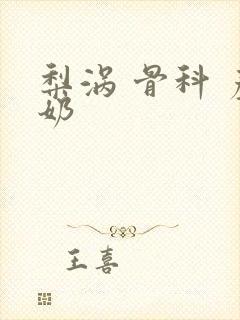 梨涡 骨科
奶
王喜